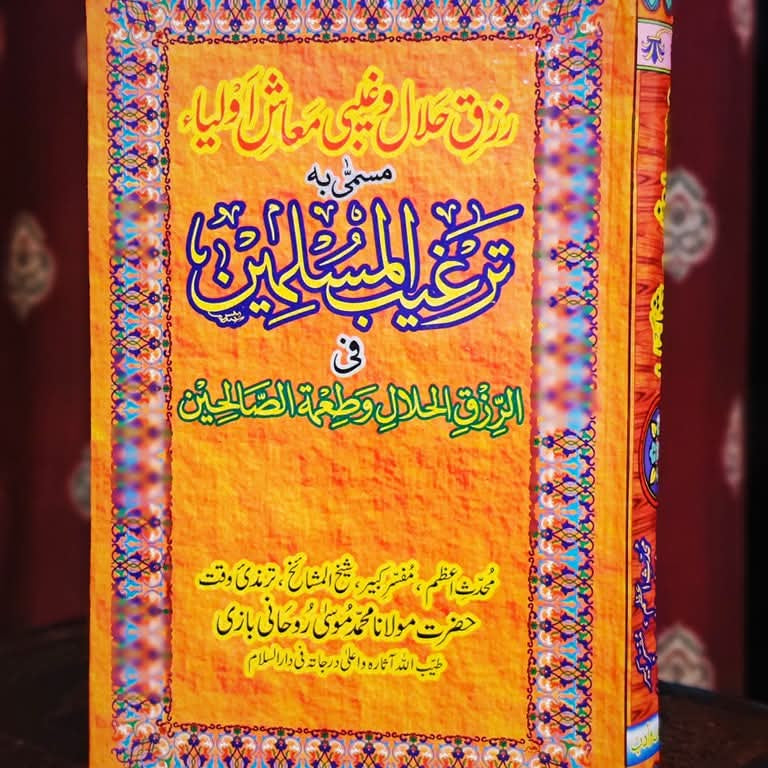 رزقِ حلال و غیبی معاشِ اَوْلیاء
مسمّٰی به
تَرغِیبُ المُسْلِمِیْن
فی
الرِّزْقِ الحَلالِ وَطِعْمَةِ الصَّالِحِیْن
مُحدّثِ اعظم، مُفسّرِ کبیر، شیخ المشائخ، ترمذیٔ وقت
حضرت مولانا محمد مُوسٰی رُوحانی بازی
طیّب اللہ آثارہ واعلیٰ درجاتہ فی دار السلام